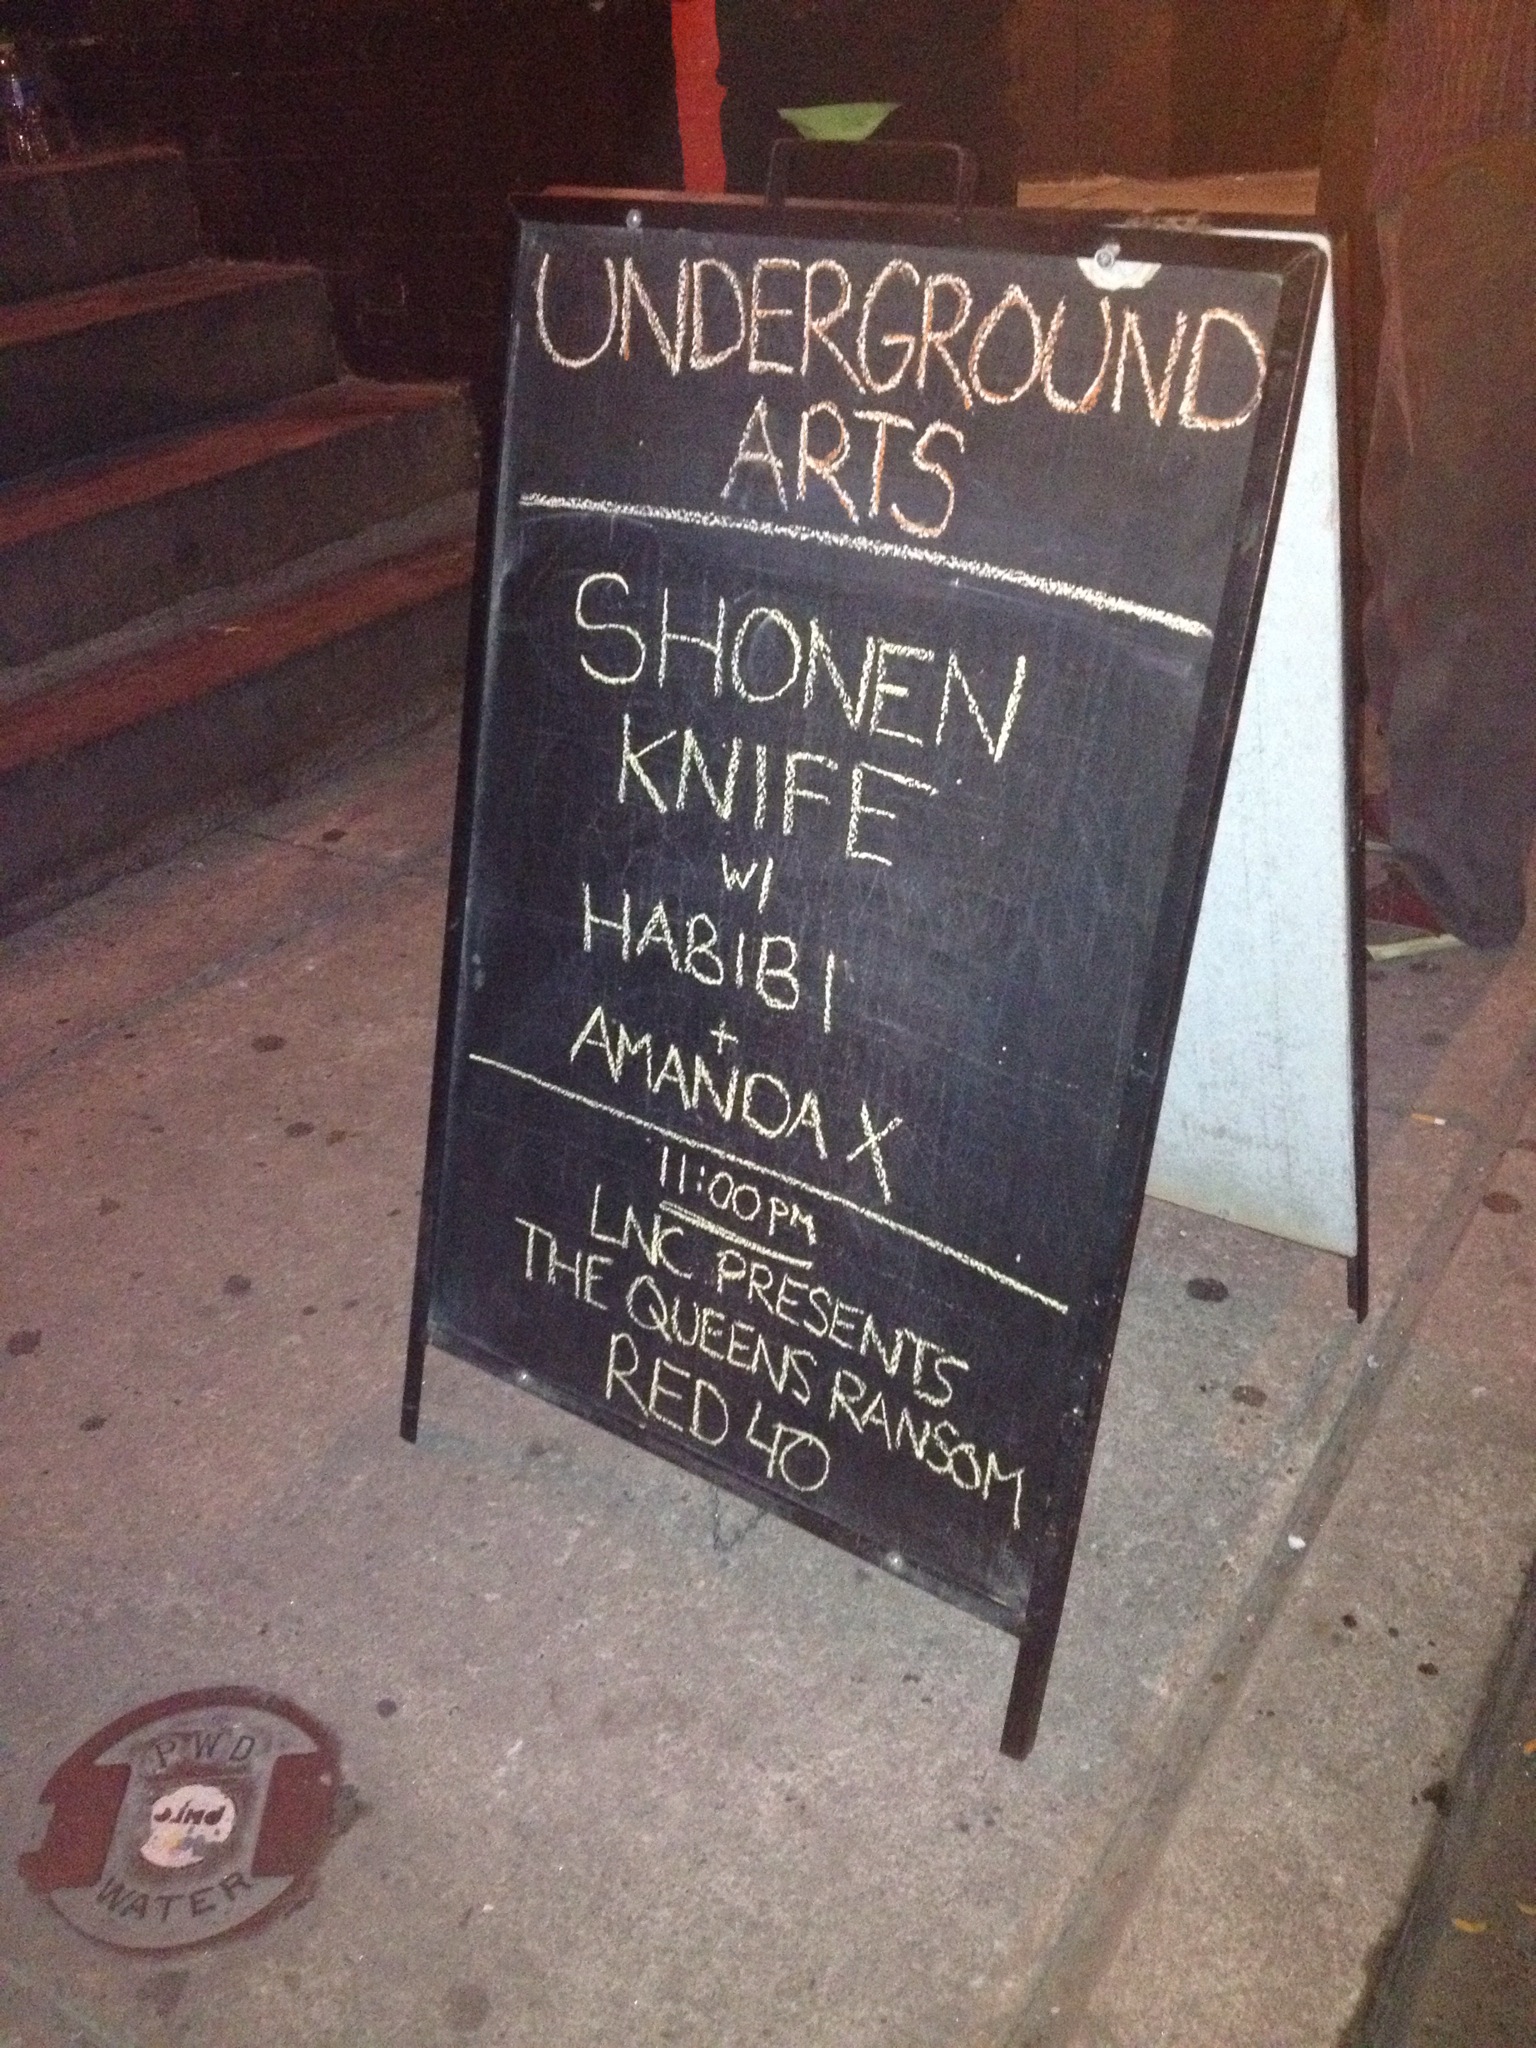 UNDERGROUND
ARTS
SHONEN
KNIFE
W/
HABIBI
+
AMANDA X
11:00PM
LNC PRESENTS
THE QUEENS RANSOM
RED 40
PWD
WATER